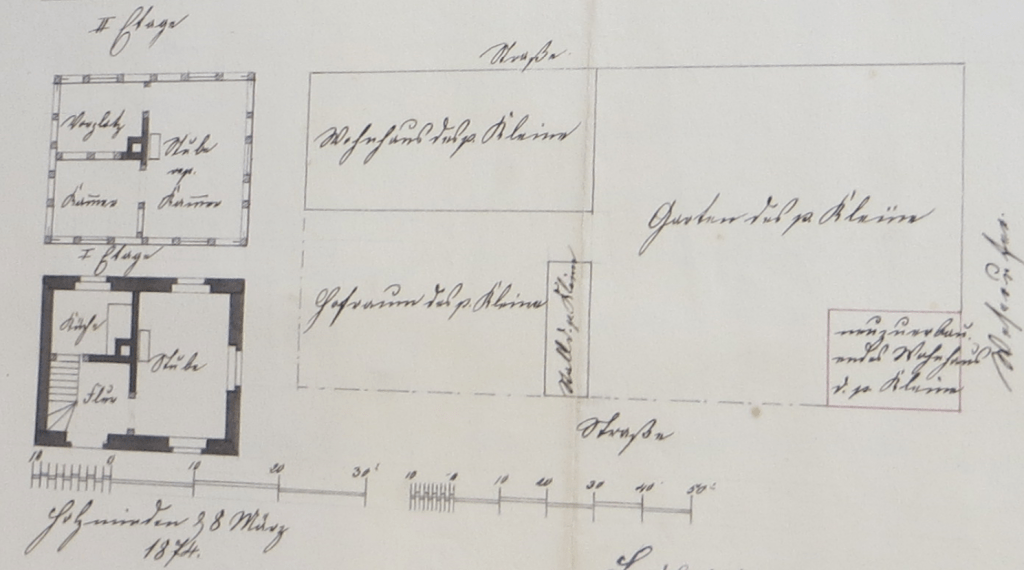 II Etage
Straße
Vorplatz
Stube
resp.
Kam̅er
Kam̅er
Wohnhaus des p. Kleine
Garten des p. Kleine
I Etage
Hofraum des p. Kleine
Stall d. p. Kleine
Weserufer.
Küche
Stube
Flur
neuzuerbau-
endes Wohnhaus
d. p. Kleine
Straße
10 0 10 20 30'
10 0 10 20 30 40 50'
Holzminden 28 März
1874.